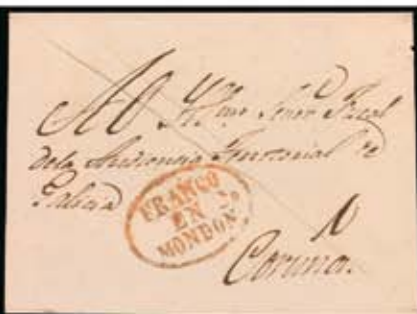 Al Ylmo Señor Fiscal
de la Audiencia Territorial de
Galicia
FRANCO
EN
MONDOÑ.
Coruña.